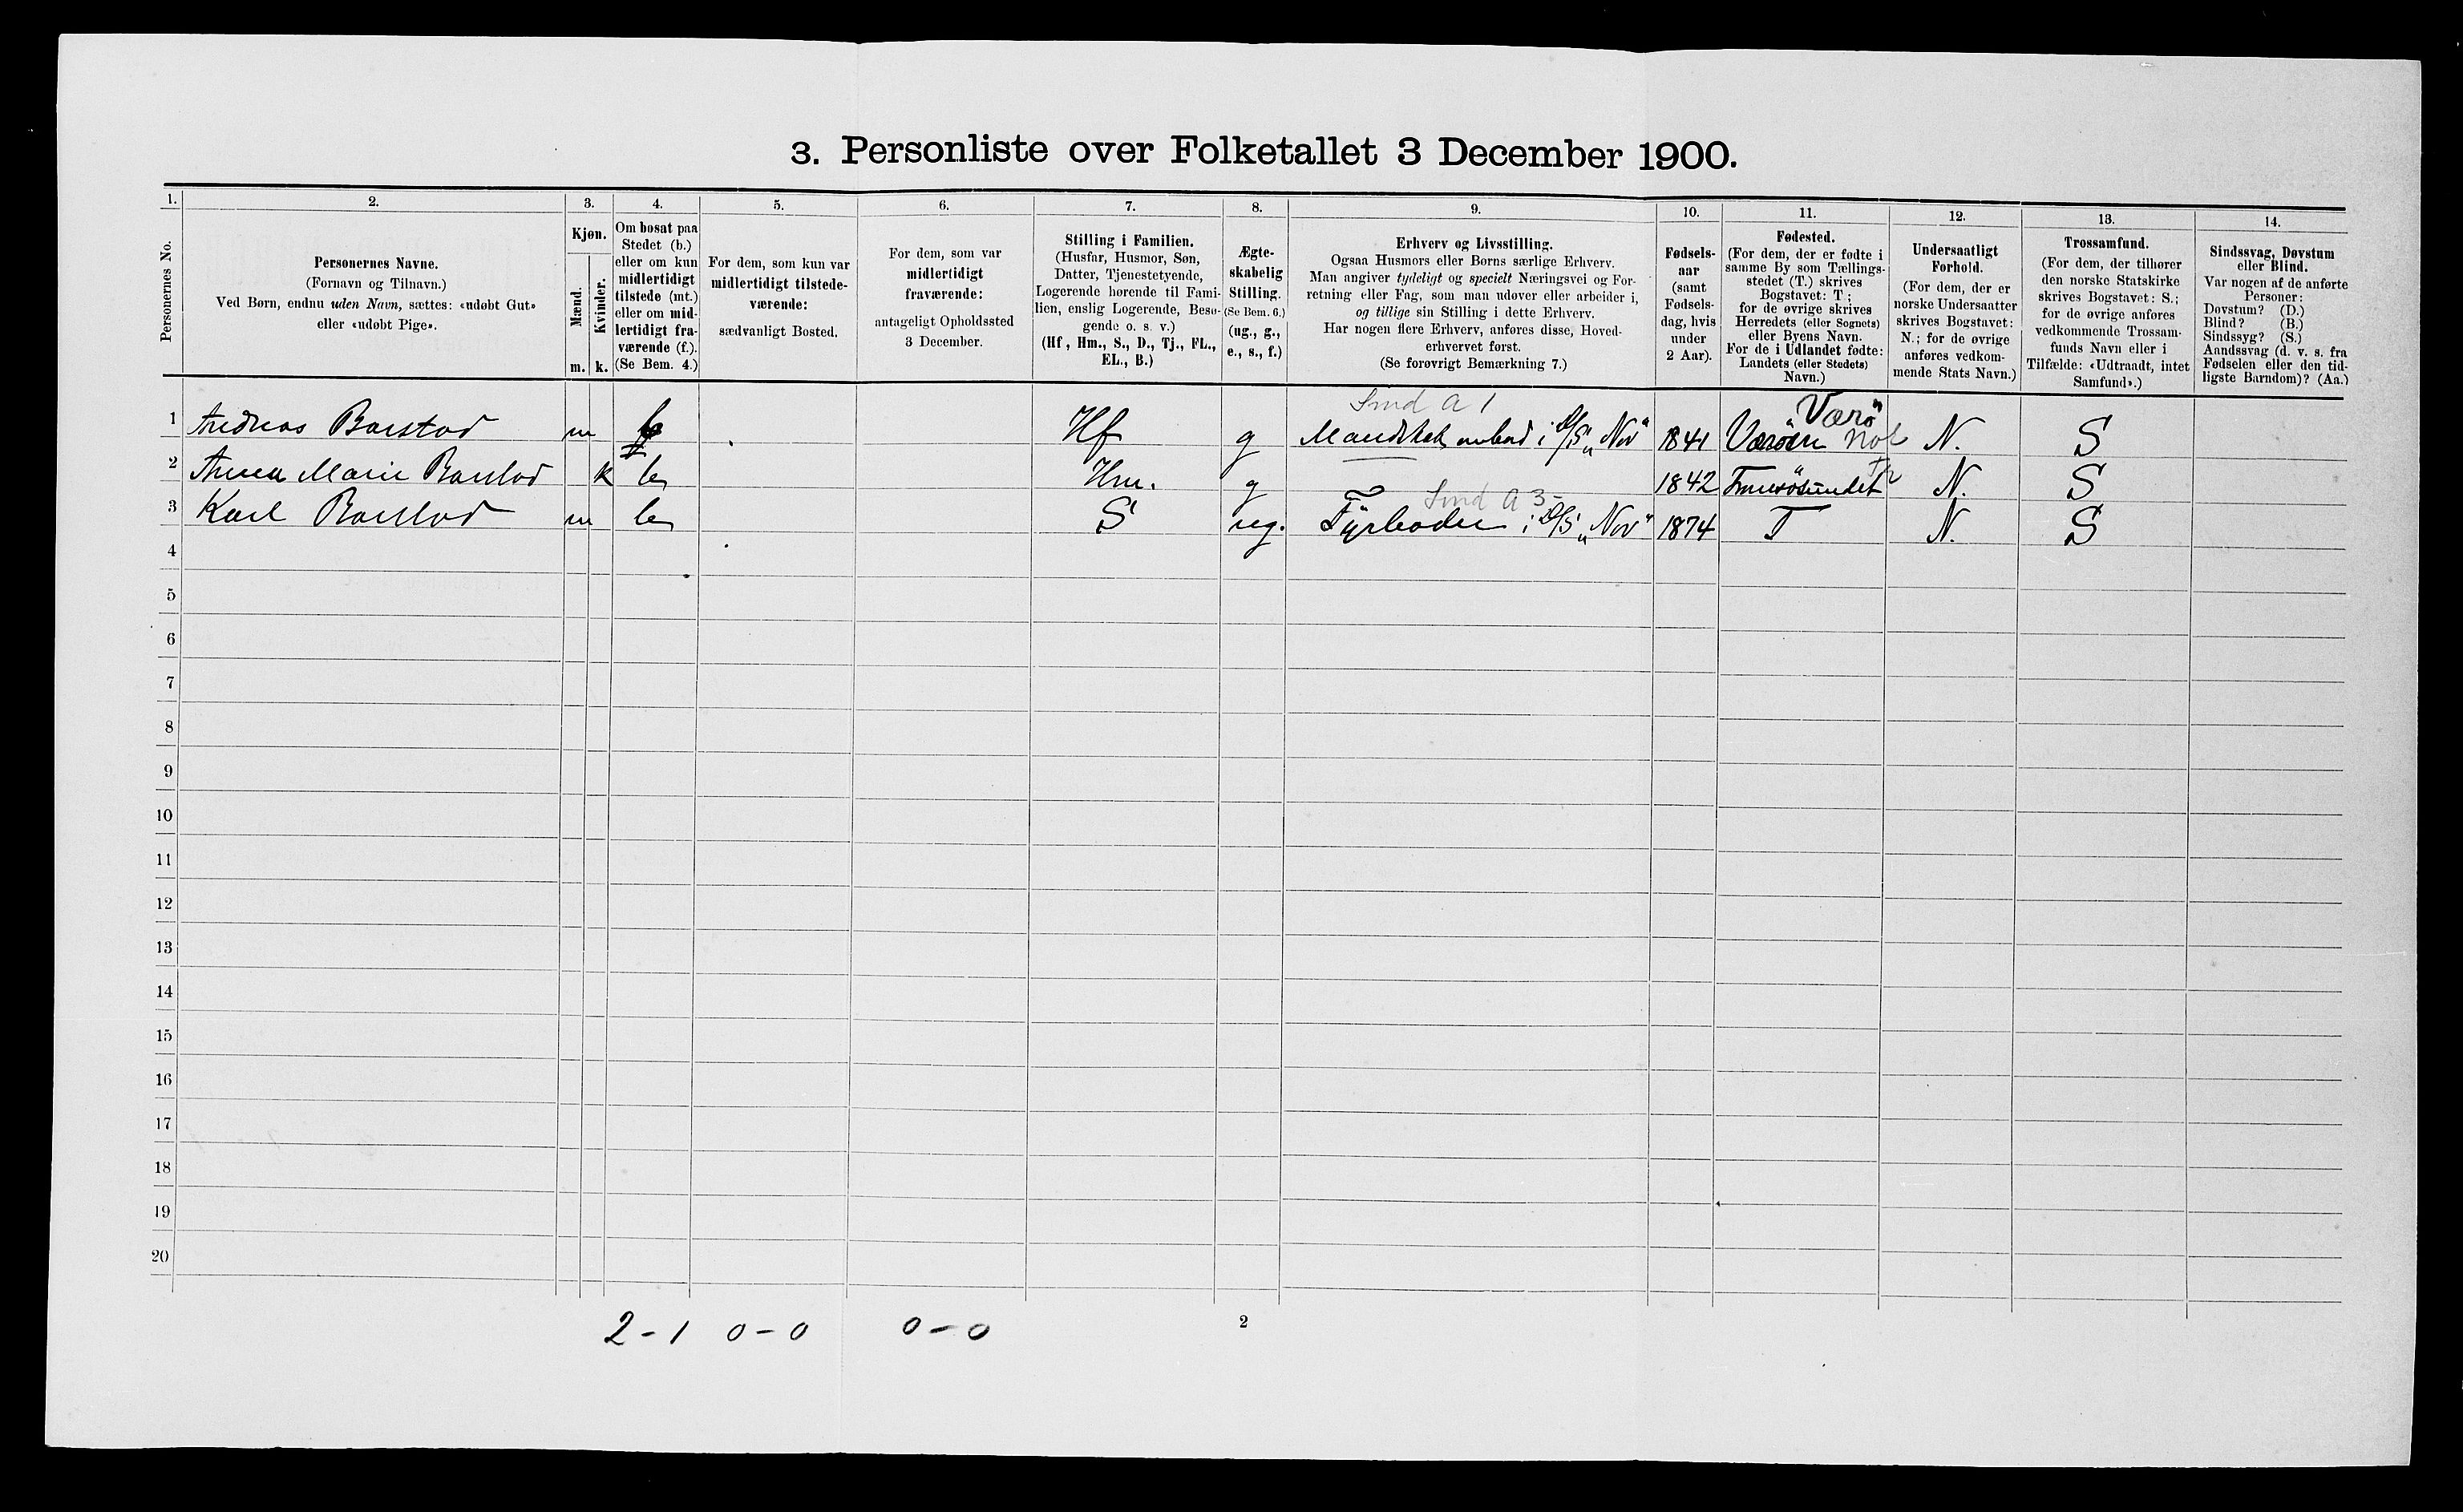 3. Personliste over Folketallet 3 December 1900.
1. 2. 3. 4. 5. 6. 7. 8. 9. 10. 11. 12. 13. 14.
Personernes No.
Personernes Navne.
(Fornavn og Tilnavn.)
Ved Børn, endnu uden Navn, sættes: «udøbt Gut»
eller «udøbt Pige».
Kjøn.
Mænd.
Kvinder.
m. k.
Om bosat paa
Stedet (b.)
eller om kun
midlertidigt
tilstede (mt.)
eller om mid-
lertidigt fra-
værende (f.).
(Se Bem. 4.)
For dem, som kun var
midlertidigt tilstede-
værende:
sædvanligt Bosted.
For dem, som var
midlertidigt
fraværende:
antageligt Opholdssted
3 December.
Stilling i Familien.
(Husfar, Husmor, Søn,
Datter, Tjenestetyende,
Logerende hørende til Fami-
lien, enslig Logerende, Besø-
gende o. s. v.)
(Hf, Hm., S., D., Tj., FL.,
EL., B.)
Ægte-
skabelig
Stilling.
(Se Bem. 6.)
(ug., g.,
e., s., f.)
Erhverv og Livsstilling.
Ogsaa Husmors eller Børns særlige Erhverv.
Man angiver tydeligt og specielt Næringsvei og For-
retning eller Fag, som man udøver eller arbeider i,
og tillige sin Stilling i dette Erhverv.
Har nogen flere Erhverv, anføres disse, Hoved-
erhvervet først.
(Se forøvrigt Bemærkning 7.)
Fødsels-
aar
(samt
Fødsels-
dag, hvis
under
2 Aar).
Fødested.
(For dem, der er fødte i
samme By som Tællings-
stedet (T.) skrives
Bogstavet: T;
for de øvrige skrives
Herredets (eller Sognets)
eller Byens Navn.
For de i Udlandet fødte:
Landets (eller Stedets)
Navn.)
Undersaatligt
Forhold.
(For dem, der er
norske Undersaatter
skrives Bogstavet:
N.; for de øvrige
anføres vedkom-
mende Stats Navn.)
Trossamfund.
(For dem, der tilhører
den norske Statskirke
skrives Bogstavet: S.;
for de øvrige anføres
vedkommende Trossam-
funds Navn eller i
Tilfælde: «Udtraadt, intet
Samfund».)
Sindssvag, Døvstum
eller Blind.
Var nogen af de anførte
Personer:
Døvstum? (D.)
Blind? (B.)
Sindssyg? (S.)
Aandssvag (d. v. s. fra
Fødselen eller den tid-
ligste Barndom)? (Aa.)
Smd a 1
Værö
1 Andreas Barstad m b Hf g Mandskab ombord i D/S „Nor" 1841 Væröen Nol N. S
2 Anna Marie Barstad k b Hm. g 1842 Tromsösundet N. S
Smd a 3
3 Karl Barstad m b S ug. Fyrböder i D/S „Nor" 1874 T N. S
4
5
6
7
8
9
10
11
12
13
14
15
16
17
18
19
20
2-1 0-0 0-0 2